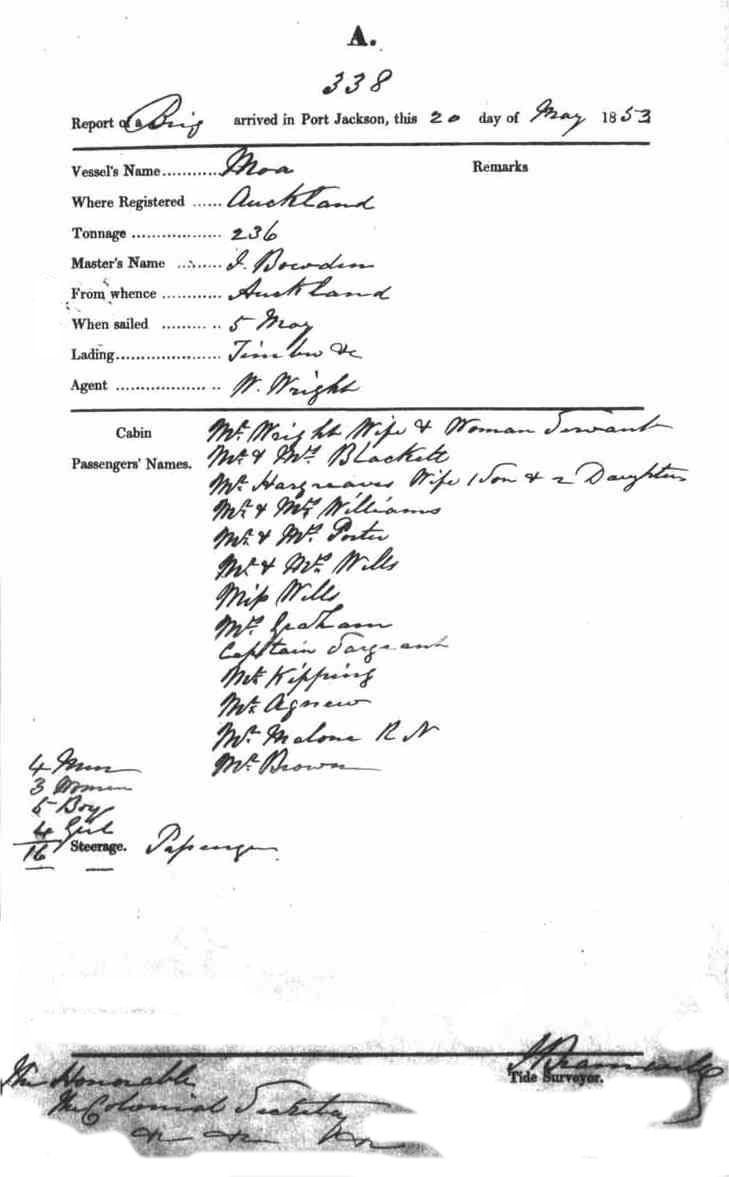 A.
338
Report of a Brig arrived in Port Jackson, this 20 day of May 1853
Vessel's Name........... Moa Remarks
Where Registered ...... Auckland
Tonnage .................. 236
Master's Name ......... J. Bowden
From whence ............ Auckland
When sailed ......... .. 5 May
Lading..................... Timber &c
Agent ................ .. W. Wright
Cabin Mr. Wright Wife & Woman Servant
Passengers' Names. Mr. & Mrs. Blackett
Mr. Hargreaves Wife 1 Son & 2 Daughters
Mr. & Mrs. Williams
Mr. & Mrs. Porter
Mr. & Mrs. Wills
Miss Wills
Mr. Graham
Captain Sargeant
Mr. Kipping
Mr. Agnew
Mr. Malone R N
Mr. Brown
4 Men
3 Women
5 Boy
4 Girl
16 Steerage. Passenger
Tide Surveyor.
The Honorable
The Colonial Secretary
&c &c &c